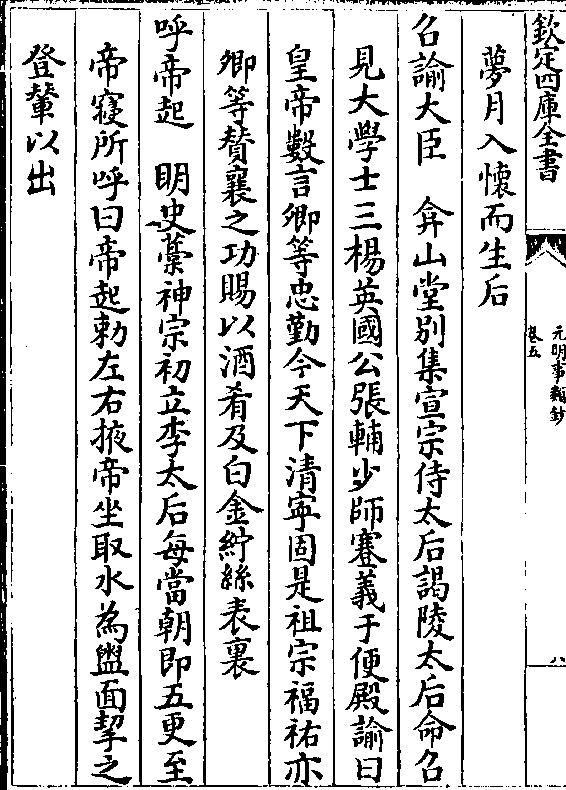 欽定四庫全書
元明事類鈔
卷五
八
夢月入懷而生后
召諭大臣　弇山堂別集宣宗侍太后謁陵太后命召
見大學士三楊英國公張輔少師蹇義于便殿諭曰
皇帝數言卿等忠勤今天下清寧固是祖宗福祐亦
卿等贊襄之功賜以酒肴及白金紵絲表裏
呼帝起　明史藁神宗初立李太后每當朝即五更至
帝寢所呼曰帝起勅左右掖帝坐取水為盥面挈之
登輦以出